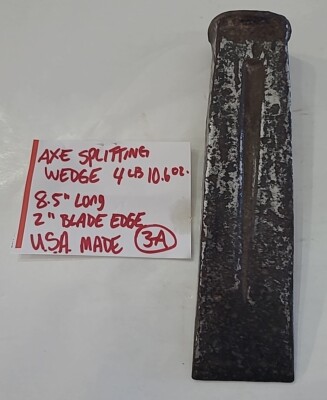 AXE SPLITTING
WEDGE 4 LB 10.6 OZ.
8.5" LONG
2" BLADE EDGE
U.S.A. MADE 3-A